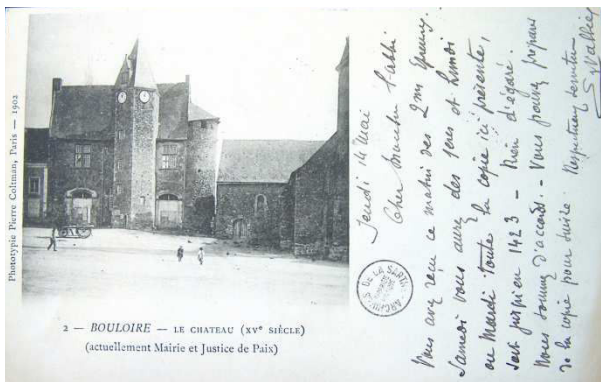 Phototypie Pierre Coltman, Paris — 1902
2 — BOULOIRE — LE CHATEAU (XVe SIÈCLE)
(actuellement Mairie et Justice de Paix)
DE LA SARTHE
Jeudi 14 Mai
Cher Monsieur l'abbé
Vous avez reçu ce matin des 2mes épreuves.
Samedi vous aurez des 1ères et lundi
ou Mardi toute la copie ici présente,
soit jusqu'en 1423 — Rien d'égaré.
Nous sommes d'accord. — Vous pouvez préparer
de la copie pour suivre.